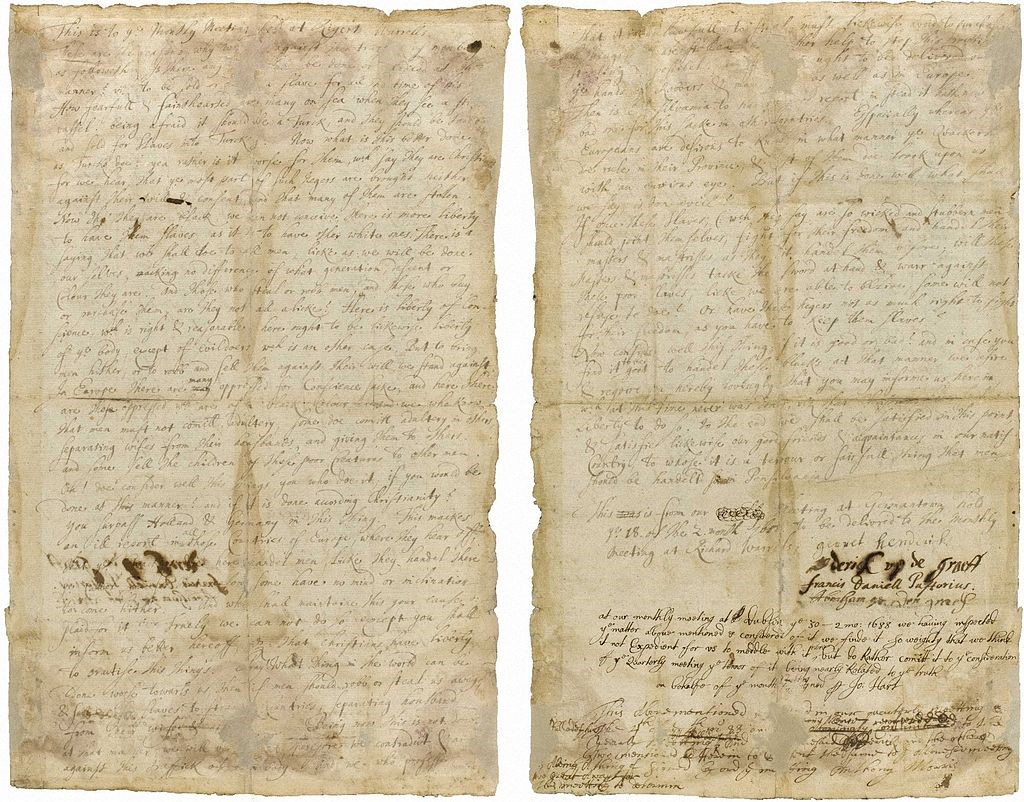 This is to ye Monthly Meeting held at Rigert Worrells
These are the reasons why we are against the traffick of mens-body
as followeth: Is there any that would be done or handled at this
manner? viz. to be sold or made a slave for all the time of his life?
How fearfull & fainthearted are many on sea when they see a strange
vassel, being afraid it should be a Turck, and they should be tacken
and sold for slaves into Turckey. Now what is this better done
as Turcks doe? yea rather is it worse for them, wch say they are Christians
for we hear, that ye most part of such Negers are brought heither
against their will & consent and that many of them are stollen
Now tho they are black, we can not conceive there is more liberty
to have them slaves, as it is to have other white ones. There is a
saying, that we shall doe to all men, licke as we will be done
our selves, macking no difference of what generation, descent or
Colour they are. And those who steal or robb men, and those who buy
or purchase them, are they not all alicke? Here is liberty of Con-
science, wch is right & reasonable, here ought to be likewise liberty
of ye body, except of evildoers, wch is an other case. But to bring
men hither, or to robb and sell them against their will, we stand against
In Europe there are many oppressed for Conscience sacke, and here there
are those oppressed wch are of a black Colour. And we, who know
that men must not comitt adultery, some doe comitt adultery in others
separating wifes from their housbands, and giving them to others
and some sell the children of those poor Creatures to other men.
Oh! doe consider well this things, you who doe it, if you would be
done at this manner? and if it is done according Christianity?
You surpass Holland & Germany in this thing. This mackes
an ill report in all those Countries of Europe, where they hear off
that ye Quackers doe here handel men, licke they handel there
ye Cattel. And for that reason some have no mind or inclination
to come hither. And who shall maintaine this your cause or
plaid for it? Truely we can not do so except you shall
inform us better hereoff, that Christians have liberty
to practise this things. Pray! What thing in the world can be
done worse towards us than if men should robb or steal us away
& sell us for slaves to strange Countries, separating housband
from their wife & children. Being now this is not done
at that manner we will be done at therefore we contradict &
are against this traffick of men body. And we who profess
that it is not lawfull to steal, must lickewise avoid to purchase
such things as are stollen, but rather help to stop this robbing
and stealing if possibel and such men ought to be delivred out
of ye hands of ye Robbers & made free as well as in Europe.
Then is Pensilvania to have a good report, in stead it hath now a
bad one for this sacke in other Countries. Especially whereas ye
Europeans are desirous to know in what manner ye Quackers
doe rule in their Province & most of them doe loock upon us
with an envious eye. But if this is done well, what shall
we say, is don evil?
If once these slaves (wch they say are so wicked and stubbern men)
should joint themselves, fight for their freedom and handel their
masters & mastrisses as they did handel them before, will these
Masters & mastrisses tacke the sword at hand & warr against
these poor slaves, licke we are able to belive, some will not
refuse to doe? Or have these Negers not as much right to fight
for their freedom, as you have to keep them slaves?
Now consider well this thing, if it is good or bad? and in case you
find it good to handel these blacks at that manner, we desire
& require you hereby lovingly that you may informe us herein
wch at this time never was done, viz. that Christians have
liberty to do so, to the end we shall be satisfied in this point
& satisfie lickewise our good friends & acquaintances in our natif
Country, to whose it is a terrour or fairfull thing that men
should be handeld so in Pensilvania
This was is from our meeting at Germantown hold
ye 18. of the 2. month 1688. to be delivred to the monthly
meeting at Richard Warrels
gerret hendericks
derick op de graeff
Francis Daniell Pastorius
Abraham op den graef
at our monthly meeting at Dublin ye 30 – 2 mo: 1688 we having inspected
ye matter above mentioned & considered of it we finde it so weighty that we think
it not Expedient for us to meddle with it here but do Rather comitt it to ye consideration
of ye Quarterly meeting ye tennor of it being nearly Related to ye truth
on behalfe of ye monthly meeting signed pr Jo: Hart
This Above mentioned was Read in our Quarterly Meeting
at Philadelphia the 4th of ye 4 mo 88 and was from thence recommended to the
Yearly Meeting
Anthony Morris